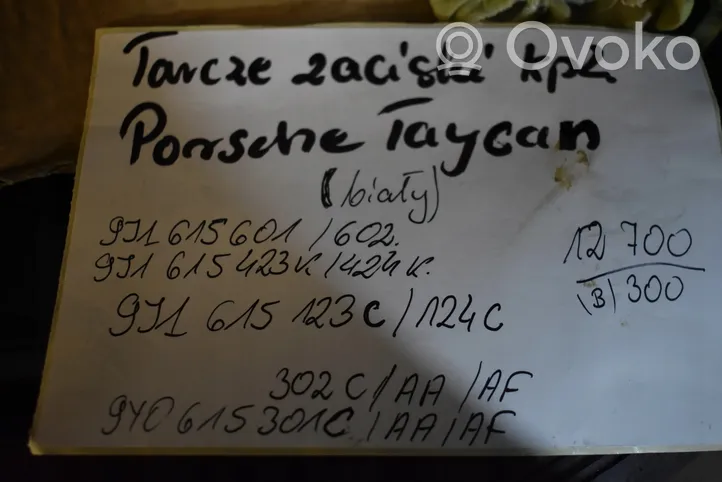 Ovoko
Tarcze zaciski kpl.
Porsche Taycan
(biały)
9J1 615 601 / 602.
9J1 615 423K / 424K.
12 700
(B) 300
9J1 615 123C / 124C
302C / AA / AF
9Y0 615 301C / AA / AF